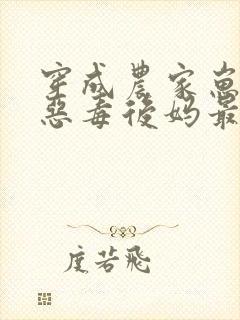 穿成農家崽
惡毒後媽最
度若飛